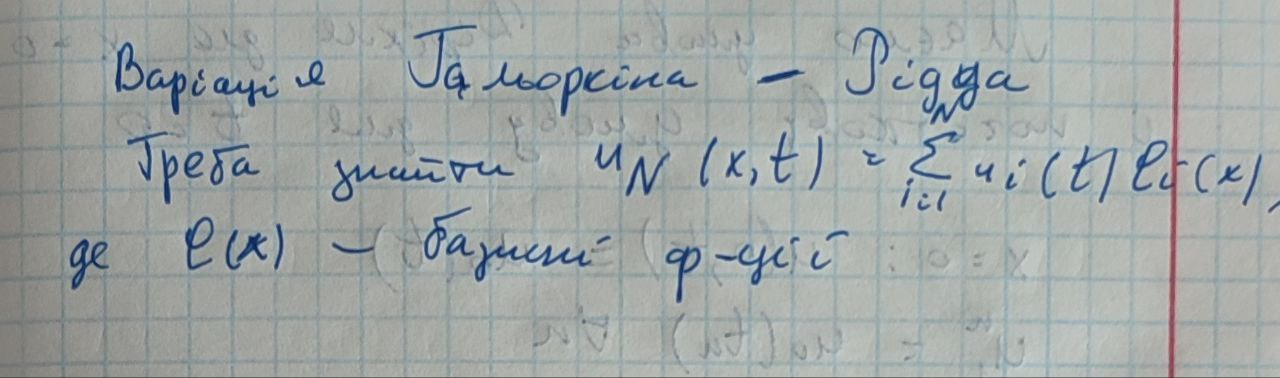 Варіація Гальоркіна – Рідца
Треба знайти u_N (x, t) = \sum_{i=1}^{N} u_i (t) l_i (x),
де l(x) – базисні ф-ції